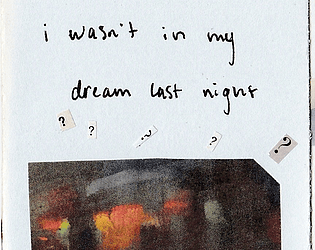 i wasn't in my
dream last night
? ? ? ? ?